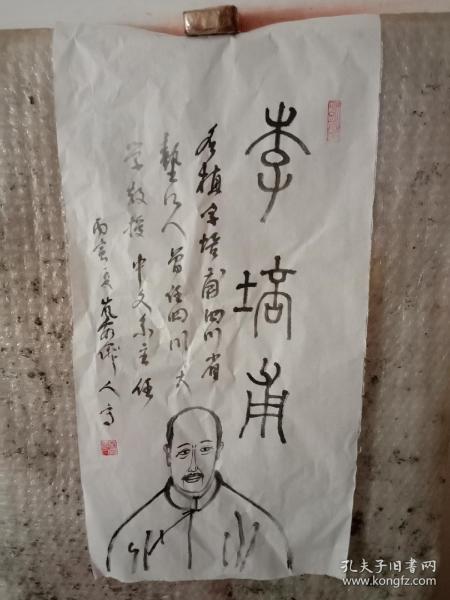 李培甫
名植字培甫四川省
垫江人曾任四川大
学教授中文系主任
人写
孔夫子旧书网
www.kongfz.com